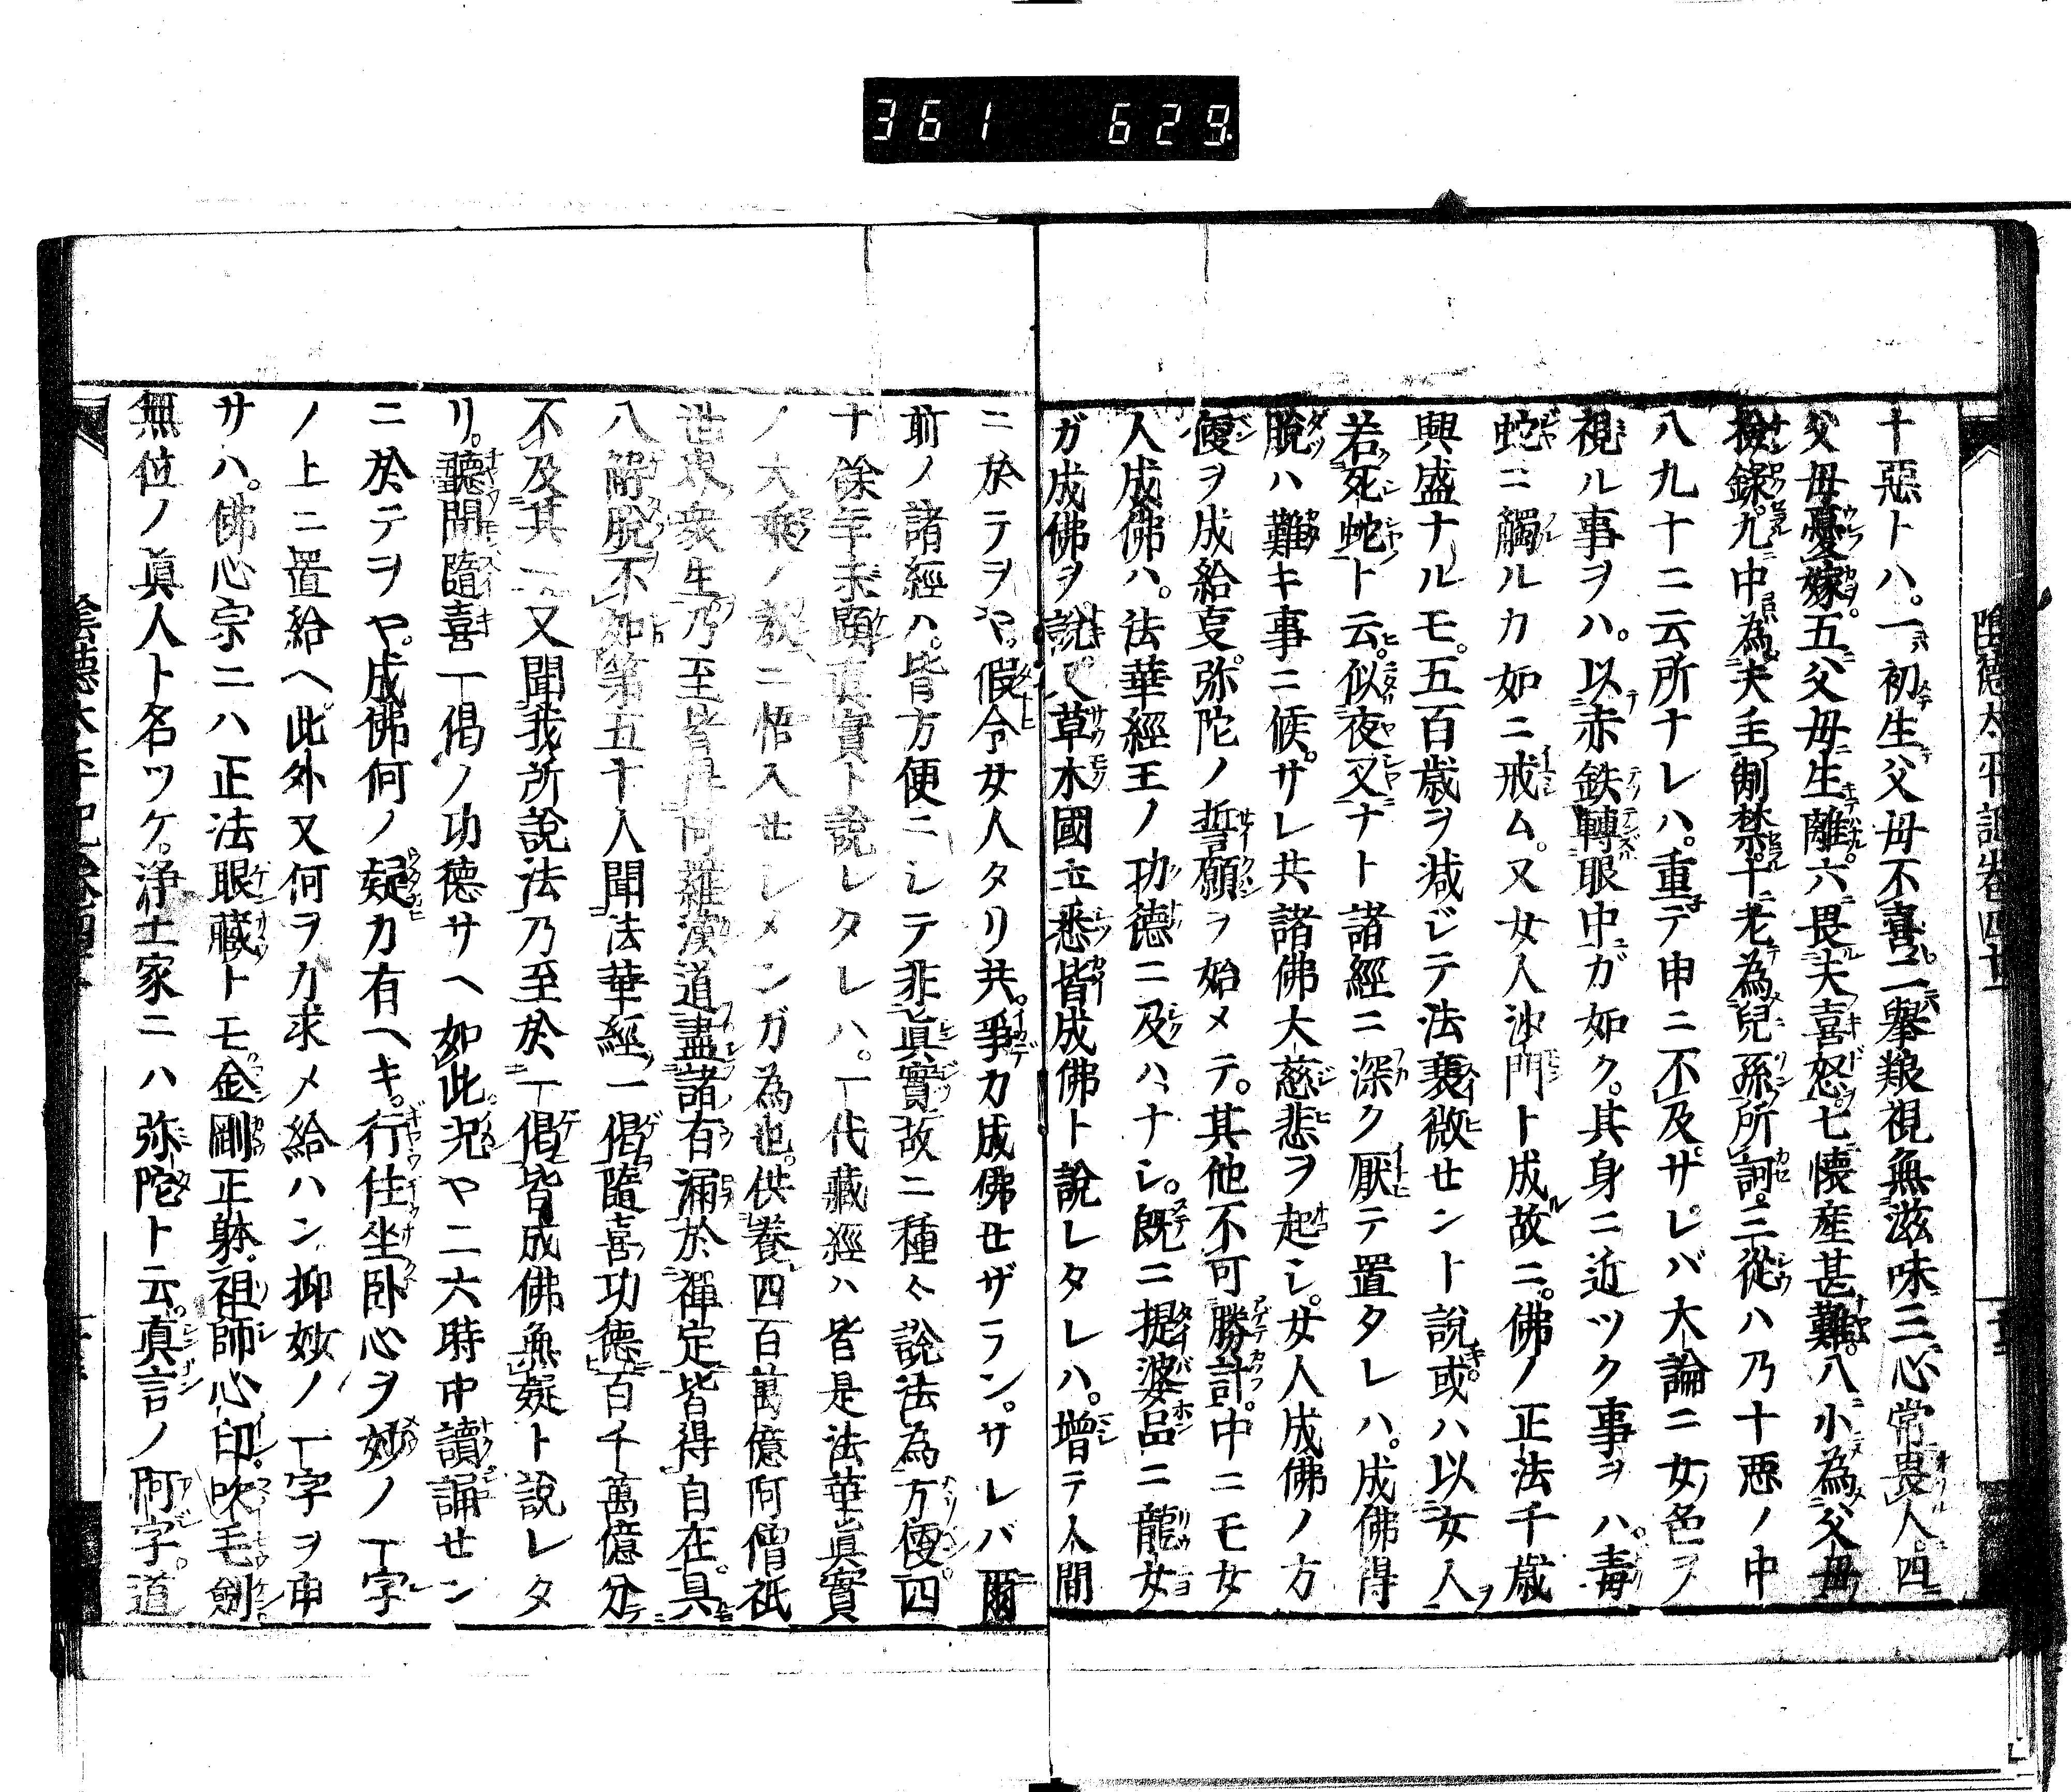 361 629
陰德太平記卷四十
十惡トハ。一初生父母不喜。二舉粮視無滋味三心常畏人。四
父母憂嫁。五父母生離。六畏夫喜怒。七懷産甚難。八小為父母
撿錄。九中為夫主制禁。十老為兒孫所訶。三從ハ乃十惡ノ中
八九十ニ云所ナレハ。重テ申ニ不及。サレバ大論ニ女色ヲ
視ル事ヲハ。以赤鉄轉眼中ガ如ク。其身ニ近ツク事ヲハ。毒
蛇ニ觸ルカ如ニ戒ム。又女人沙門ト成故ニ。佛ノ正法千歳
興盛ナルモ。五百歳ヲ減ジテ法衰微セント說。或ハ以女人
若死蛇ト云。似夜叉ナト諸經ニ深ク厭テ置タレハ。成佛得
脫ハ難キ事ニ候。サレ共諸佛大慈悲ヲ起シ。女人成佛ノ方
便ヲ成給夏。弥陀ノ誓願ヲ始メテ。其他不可勝計。中ニモ女
人成佛ハ。法華經王ノ功德ニ及ハナシ。既ニ提婆品ニ龍女
ガ成佛ヲ說又草木國土悉皆成佛ト說レタレハ。增テ人間
ニ於テヲヤ。假令女人タリ共。爭カ成佛セザラン。サレバ爾
前ノ諸經ハ。皆方便ニシテ非眞實故ニ種々說法為方便。四
十餘年未顯眞實ト說レタレハ。一代藏經ハ皆是法華眞實
ノ大乘ノ說ニ悟入セレメンガ為也。供養四百萬億阿僧祇
世界衆生乃至皆得阿羅漢道盡諸有漏於禪定皆得自在。具
八解脫不如第五十人聞法華經一偈隨喜功德百千萬億分
不及其一又聞我所說法乃至於一偈皆成佛無疑ト說レタ
リ。聽聞隨喜一偈ノ功德サヘ如此。况ヤ二六時中讀誦セン
ニ於テヲヤ。成佛何ノ疑カ有ヘキ。行住坐臥心ヲ妙ノ一字
ノ上ニ置給ヘ。此外又何ヲカ求メ給ハン抑妙ノ一字ヲ申
サハ。佛心宗ニハ正法眼藏トモ。金剛正躰。祖師心印。吹毛劍
無位ノ眞人ト名ツケ。淨土家ニハ弥陀ト云。真言ノ阿字。道